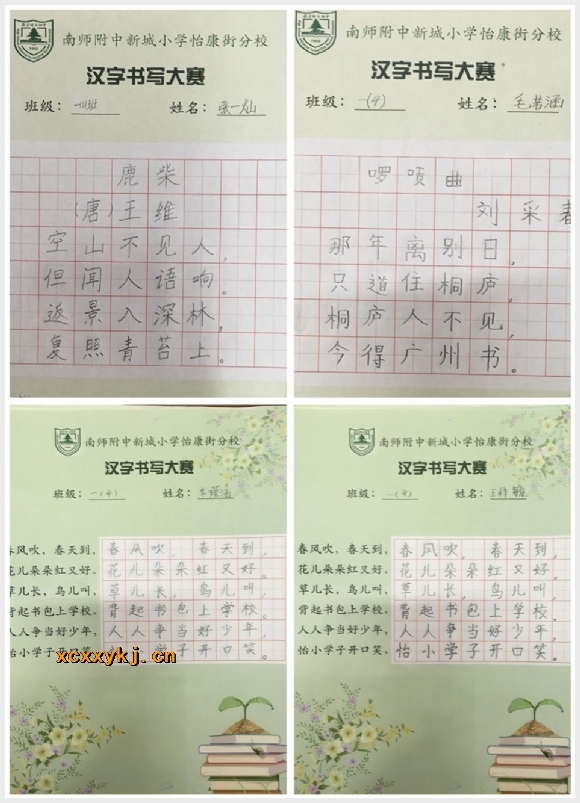 南师附中新城小学怡康街分校
汉字书写大赛
班级：一(4)班 姓名：张一灿
鹿柴
(唐)王维
空山不见人，
但闻人语响。
返景入深林，
复照青苔上。
南师附中新城小学怡康街分校
汉字书写大赛
班级：一(4) 姓名：毛若涵
啰唝曲
刘采春
那年离别日，
只道住桐庐。
桐庐人不见，
今得广州书。
南师附中新城小学怡康街分校
汉字书写大赛
班级：一(4) 姓名：
春风吹，春天到， 春风吹，春天到，
花儿朵朵红又好。 花儿朵朵红又好。
草儿长，鸟儿叫， 草儿长，鸟儿叫，
背起书包上学校。 背起书包上学校。
人人争当好少年， 人人争当好少年，
怡小学子开口笑。 学子开口笑。
xcxxykj.cn
南师附中新城小学怡康街分校
汉字书写大赛
班级：一(4) 姓名：王梓
春风吹，春天到， 春风吹，春天到，
花儿朵朵红又好。 花儿朵朵红又好。
草儿长，鸟儿叫， 草儿长，鸟儿叫，
背起书包上学校。 背起书包上学校。
人人争当好少年， 人人争当好少年，
怡小学子开口笑。 怡小学子开口笑。